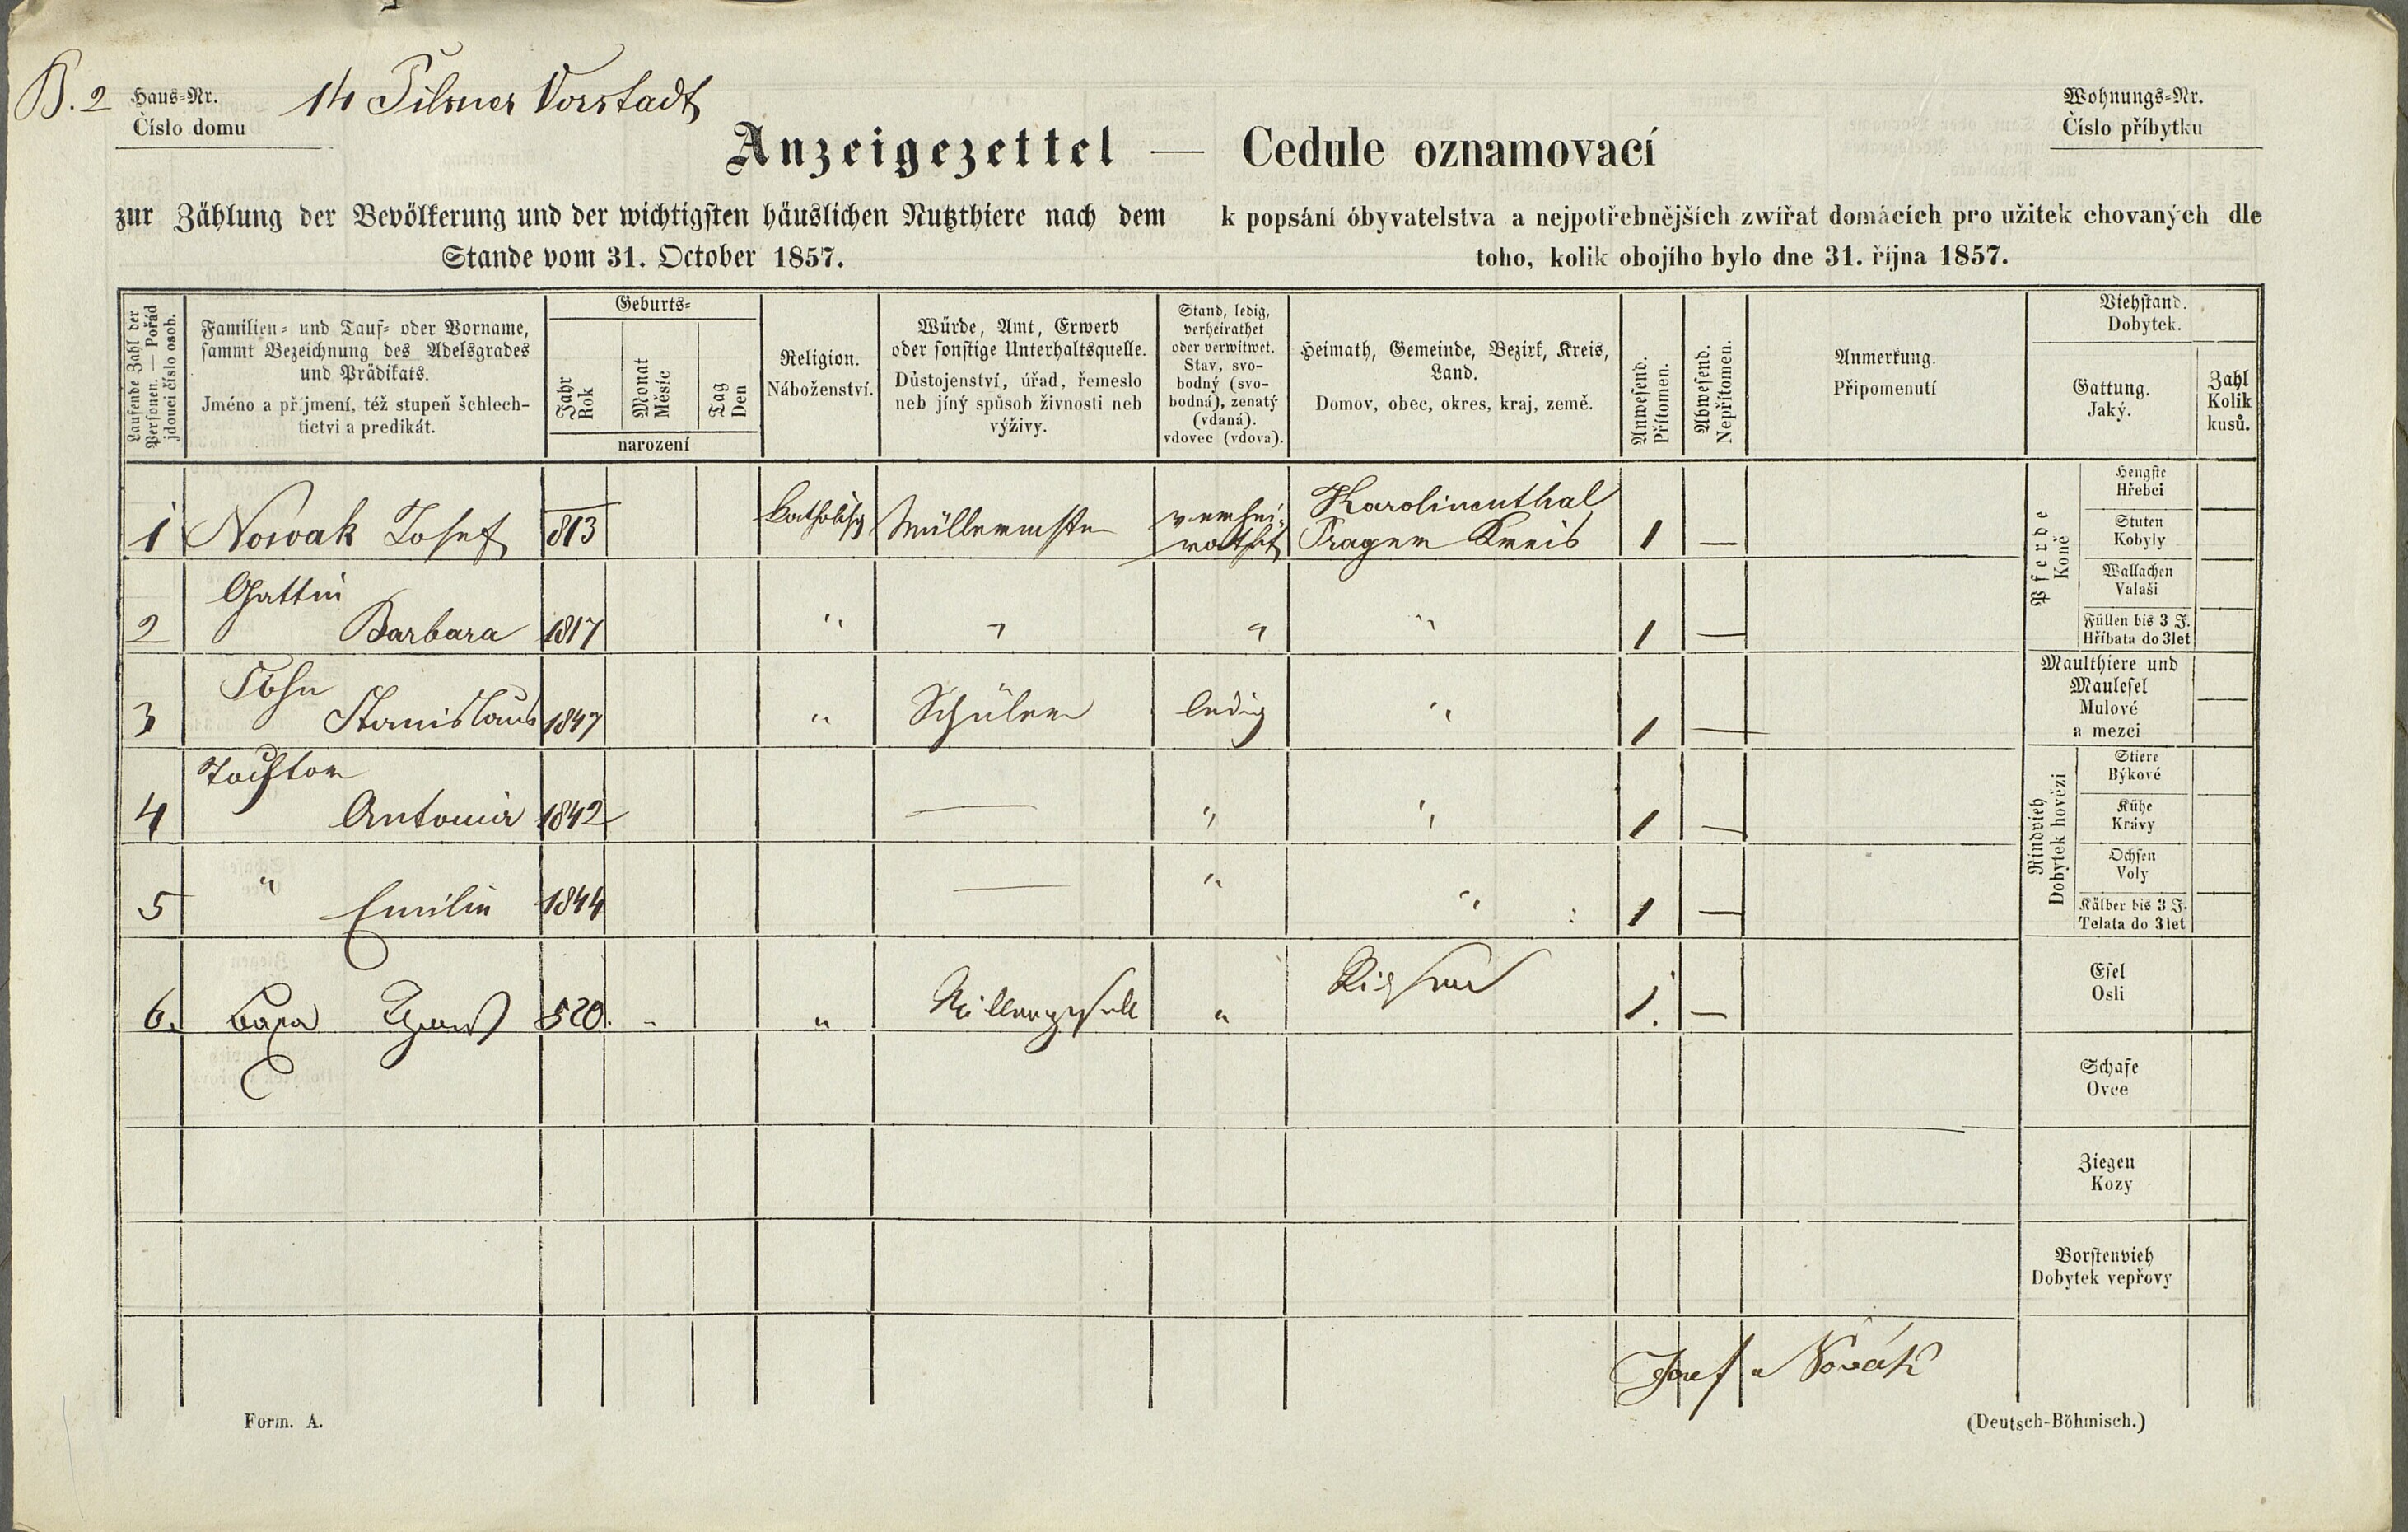 B. 2
Haus-Nr.
Číslo domu
14 Pilsner Vorstadt
Wohnungs-Nr.
Číslo příbytku
Anzeigezettel — Cedule oznamovací
zur Zählung der Bevölkerung und der wichtigsten häuslichen Nutzthiere nach dem
Stande vom 31. October 1857.
k popsání óbyvatelstva a nejpotřebnějších zwířat domácích pro užitek chovaných dle
toho, kolik obojího bylo dne 31. října 1857.
Laufende Zahl der
Personen. — Pořád
jdoucí číslo osob.
Familien- und Tauf- oder Vorname,
sammt Bezeichnung des Adelsgrades
und Prädikats.
Jméno a příjmení, též stupeň šchlech-
tictvi a predikát.
Geburts-
Jahr
Rok
Monat
Měsíc
Tag
Den
narození
Religion.
Náboženství.
Würde, Amt, Erwerb
oder sonstige Unterhaltsquelle.
Důstojenství, úřad, řemeslo
neb jíný spůsob živnosti neb
výživy.
Stand, ledig,
verheirathet
oder verwitwet.
Stav, svo-
bodný (svo-
bodná), zenatý
(vdaná).
vdovec (vdova).
Heimath, Gemeinde, Bezirk, Kreis,
Land.
Domov, obec, okres, kraj, země.
Anwesend.
Přítomen.
Abwesend.
Nepřítomen.
Anmerkung.
Připomenutí
Viehstand.
Dobytek.
Gattung.
Jaký.
Zahl
Kolik
kusů.
1 Nowak Josef 813 katholisch Müllermster verhei-
rathet Karolinenthal
Prager Kreis 1 —
Gattin
2 Barbara 1817 " " " " 1 —
Sohn
3 Stanislaus 1847 " Schüler ledig " 1 —
Tochter
4 Antonia 1842 — " " 1 —
5 " Emilie 1844 — " " : 1 —
6. 820. - " Müllergesell " 1. —
Pferde
Koně
Hengste
Hřebci
Stuten
Kobyly
Wallachen
Valaši
Füllen bis 3 J.
Hříbata do 3let
Maulthiere und
Maulesel
Mulové
a mezci
Rindvieh
Dobytek hovězi
Stiere
Býkové
Kühe
Krávy
Ochsen
Voly
Kälber bis 3 J.
Telata do 3let
Esel
Osli
Schafe
Ovce
Ziegen
Kozy
Borstenvieh
Dobytek vepřovy
Josef Novák
Form. A.
(Deutsch-Böhmisch.)